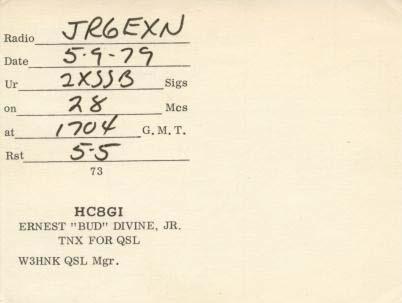 Radio JR6EXN
Date 5-9-79
Ur 2XSSB Sigs
on 28 Mcs
at 1704 G. M. T.
Rst 5-5
73
HC8GI
ERNEST "BUD" DIVINE, JR.
TNX FOR QSL
W3HNK QSL Mgr.